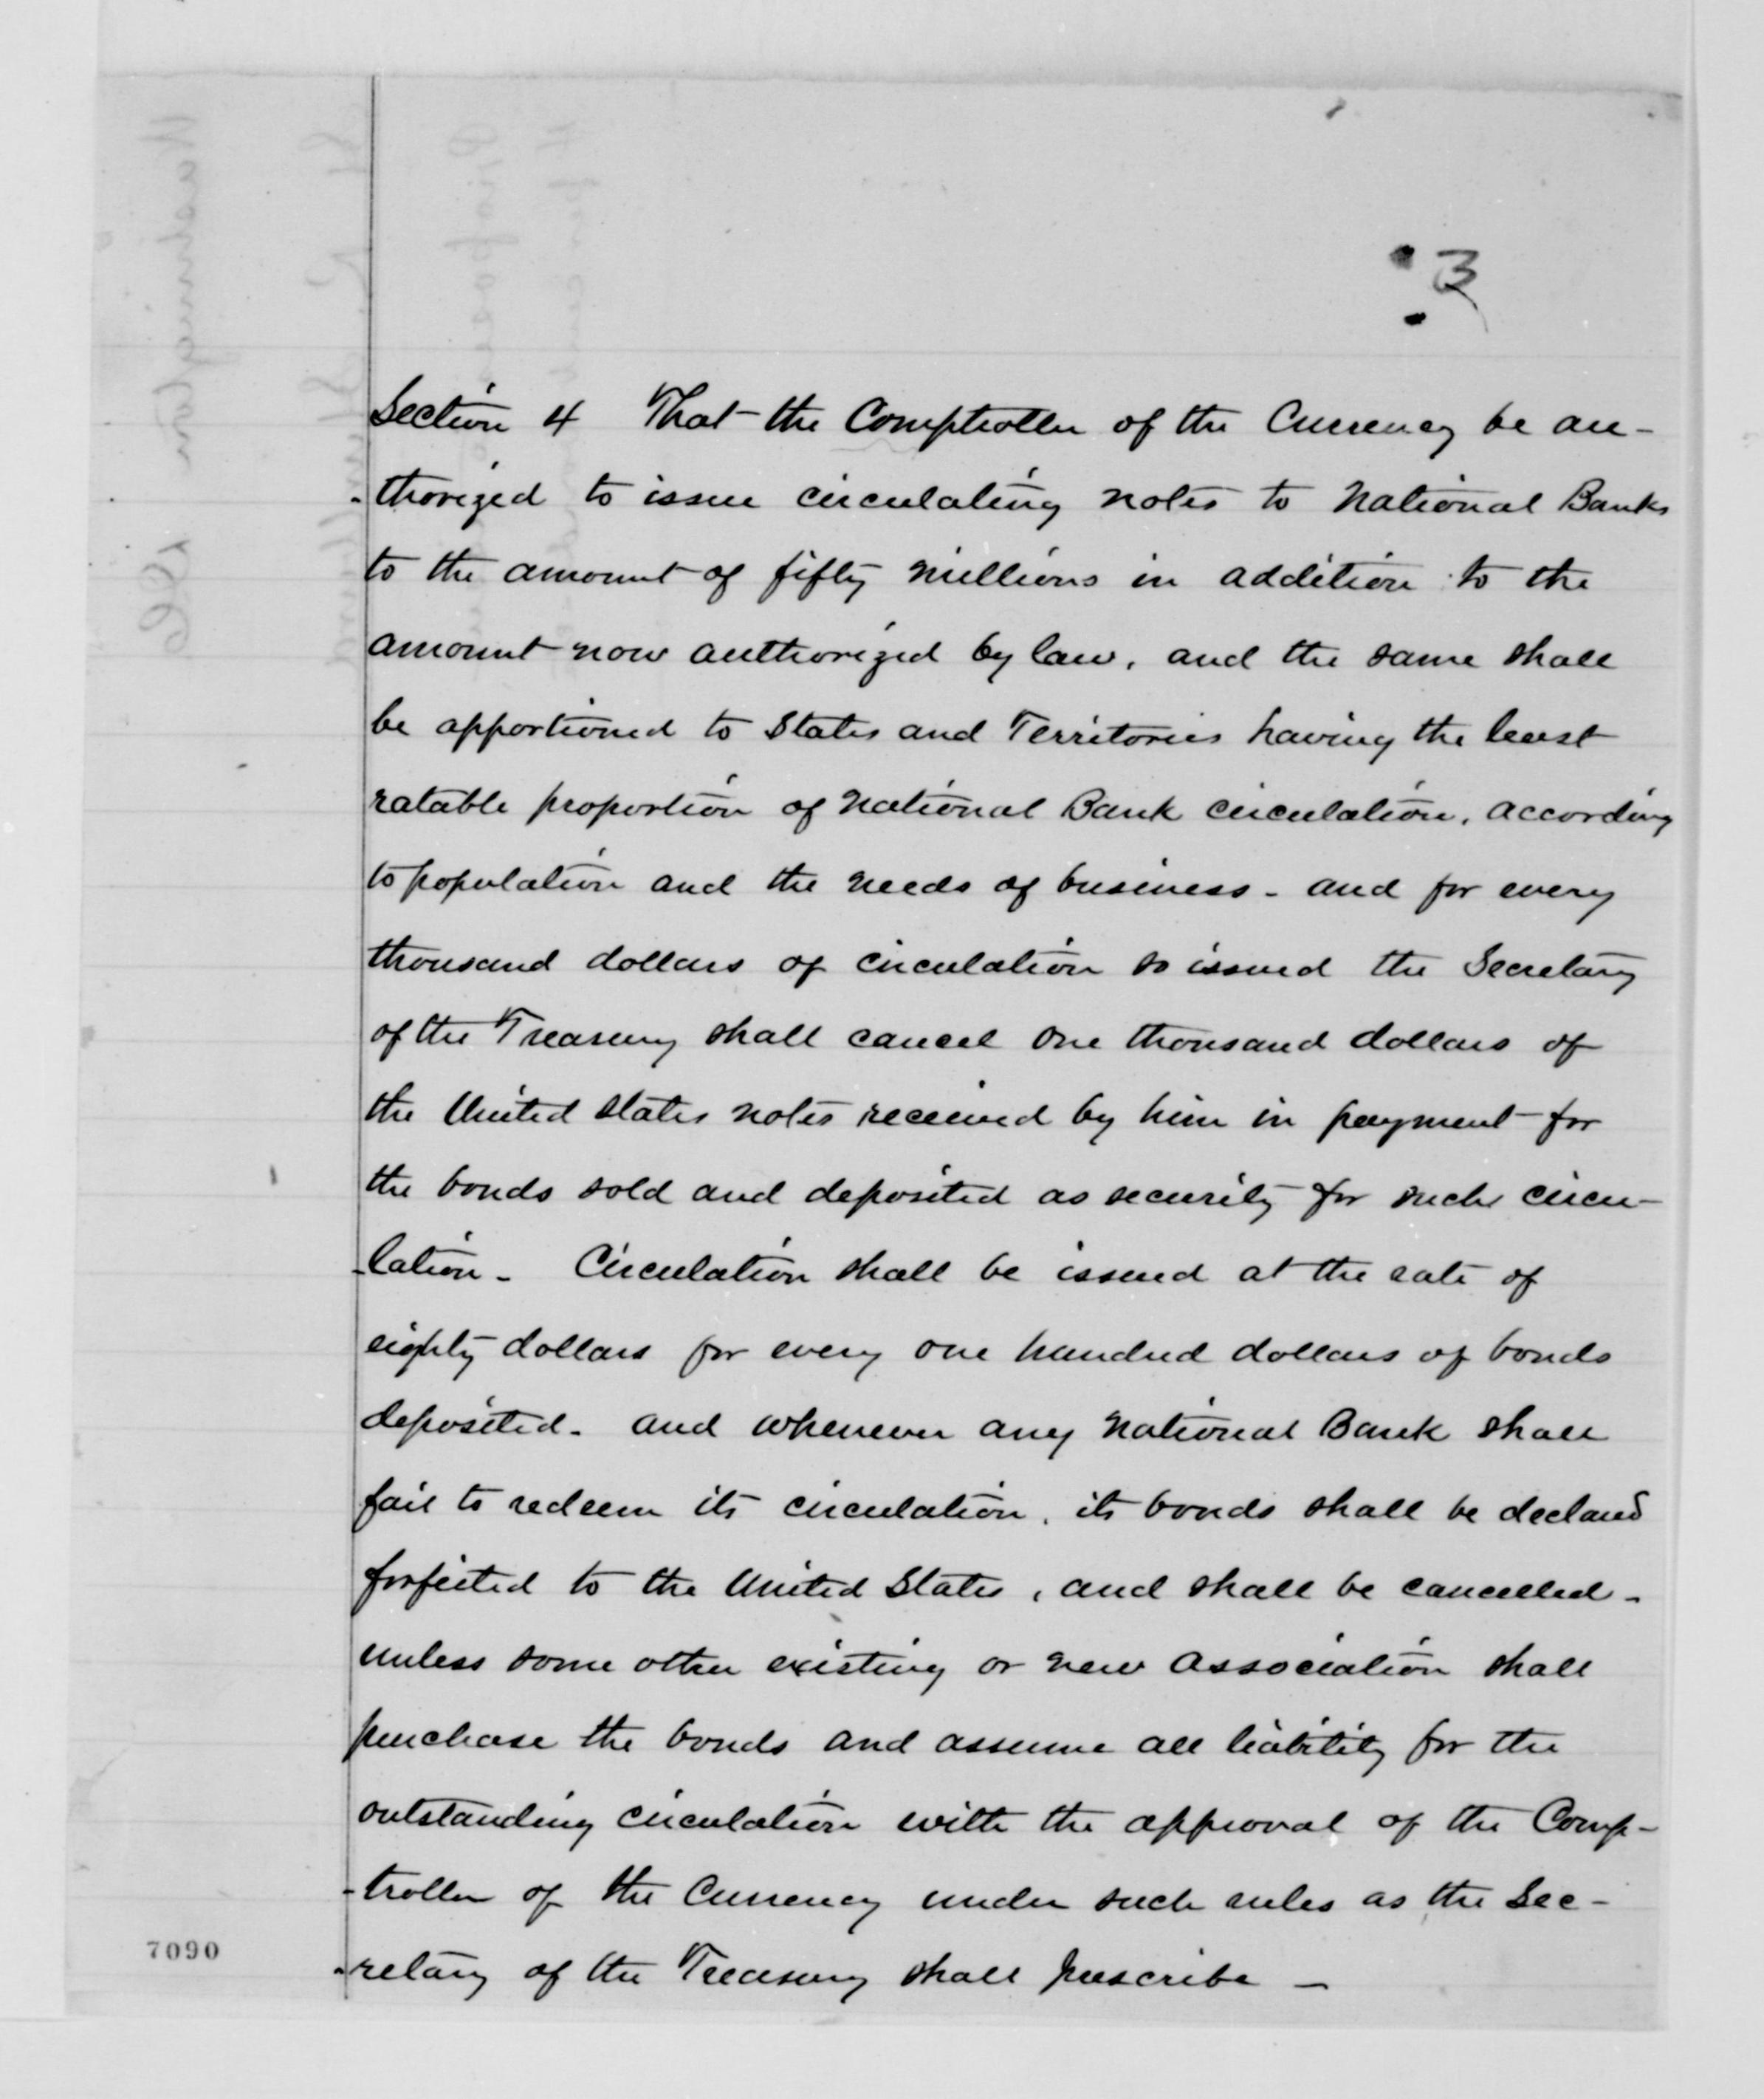 3
Section 4 That the Comptroller of the Currency be au-
-thorized to issue circulating notes to National Banks
to the amount of fifty millions in addition to the
amount now authorized by law, and the same shall
be apportioned to States and Territories having the least
ratable proportion of National Bank circulation, according
to population and the needs of business - and for every
thousand dollars of circulation so issued the Secretary
of the Treasury shall cancel one thousand dollars of
the United States notes received by him in payment for
the bonds sold and deposited as security for such circu-
-lation - Circulation shall be issued at the rate of
eighty dollars for every one hundred dollars of bonds
deposited - and whenever any National Bank shall
fail to redeem its circulation, its bonds shall be declared
forfeited to the United States, and shall be cancelled -
unless some other existing or new association shall
purchase the bonds and assume all liability for the
outstanding circulation with the approval of the Comp-
-troller of the Currency under such rules as the Sec-
-retary of the Treasury shall prescribe -
7090